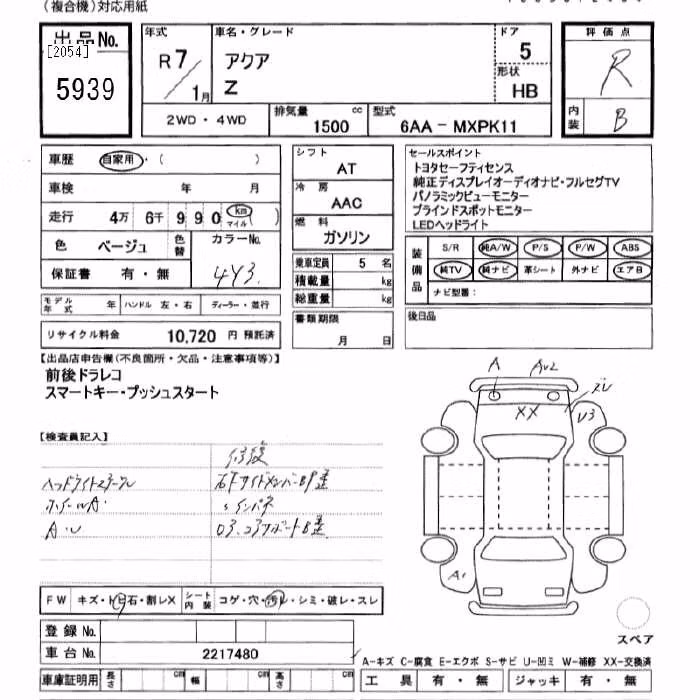 (複合機)対応用紙
出品No.
[2054]
5939
年式
R7/1月
車名・グレード
アクア
Z
ドア
5
形状
HB
評価点
R
内装
B
2WD・4WD
排気量 1500 cc
型式 6AA-MXPK11
車歴 自家用・( )
車検 年 月
走行 4万 6千 9 9 0 km マイル
色 ベージュ 色替 カラーNo. 4Y3
保証書 有・無
モデル年式 年 ハンドル 左・右 ディーラー・並行
リサイクル料金 10,720 円 預託済
シフト
AT
冷房
AAC
燃料
ガソリン
乗車定員 5 名
積載量 kg
総重量 kg
書類期限
月 日
セールスポイント
トヨタセーフティセンス
純正ディスプレイオーディオナビ・フルセグTV
パノラミックビューモニター
ブラインドスポットモニター
LEDヘッドライト
装備品
S/R 純A/W P/S P/W ABS
純TV 純ナビ 革シート 外ナビ エアB
ナビ型番:
後日品
【出品店申告欄(不良箇所・欠品・注意事項等)】
前後ドラレコ
スマートキー・プッシュスタート
【検査員記入】
修復
A・U
A
XX
U3
A1
スペア
FW キズ・ト ビ石・割レX シート内装 コゲ・穴・汚レ・シミ・破レ・スレ
登録No.
車台No. 2217480
車庫証明用 長さ cm 幅 cm 高さ cm
A-キズ C-腐食 E-エクボ S-サビ U-凹ミ W-補修 XX-交換済
工具 有・無 ジャッキ 有・無